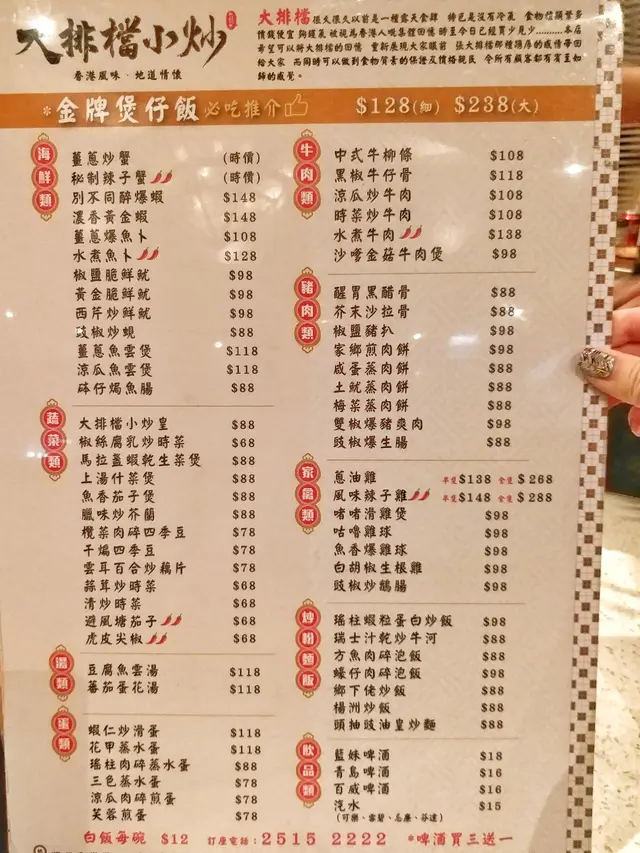 大排檔小炒
香港風味．地道情懷
大排檔
*金牌煲仔飯必吃推介 $128(細) $238(大)
海鮮類
薑蔥炒蟹 (時價)
秘制辣子蟹 (時價)
別不同醉爆蝦 $148
濃香黃金蝦 $148
薑蔥爆魚卜 $108
水煮魚卜 $128
椒鹽脆鮮魷 $98
黃金脆鮮魷 $98
西芹炒鮮魷 $98
豉椒炒蜆 $88
薑蔥魚雲煲 $118
涼瓜魚雲煲 $118
砵仔焗魚腸 $88
蔬菜類
大排檔小炒皇 $88
椒絲腐乳炒時菜 $68
馬拉盞蝦乾生菜煲 $88
上湯什菜煲 $88
魚香茄子煲 $88
臘味炒芥蘭 $88
欖菜肉碎四季豆 $78
干煸四季豆 $78
雲耳百合炒藕片 $78
蒜茸炒時菜 $68
清炒時菜 $68
避風塘茄子 $68
虎皮尖椒 $68
湯類
豆腐魚雲湯 $118
蕃茄蛋花湯 $118
蛋類
蝦仁炒滑蛋 $118
花甲蒸水蛋 $118
瑤柱肉碎蒸水蛋 $88
三色蒸水蛋 $78
涼瓜肉碎煎蛋 $78
芙蓉煎蛋 $78
牛肉類
中式牛柳條 $108
黑椒牛仔骨 $118
涼瓜炒牛肉 $108
時菜炒牛肉 $108
水煮牛肉 $138
沙嗲金菇牛肉煲 $98
豬肉類
醒胃黑醋骨 $88
芥末沙拉骨 $88
椒鹽豬扒 $98
家鄉煎肉餅 $98
咸蛋蒸肉餅 $88
土魷蒸肉餅 $88
梅菜蒸肉餅 $88
雙椒爆豬爽肉 $98
豉椒爆生腸 $88
家禽類
蔥油雞 半隻$138 全隻$268
風味辣子雞 半隻$148 全隻$288
啫啫滑雞煲 $98
咕嚕雞球 $98
魚香爆雞球 $98
白胡椒生根雞 $98
豉椒炒鵝腸 $98
炒粉麵飯
瑤柱蝦粒蛋白炒飯 $98
瑞士汁乾炒牛河 $88
方魚肉碎泡飯 $88
蠔仔肉碎泡飯 $98
鄉下佬炒飯 $88
楊洲炒飯 $88
頭抽豉油皇炒麵 $88
飲品類
藍妹啤酒 $18
青島啤酒 $16
百威啤酒 $16
汽水 $15
(可樂、雲碧、忌廉、芬達)
白飯每碗 $12 訂座電話：2515 2222 *啤酒買三送一